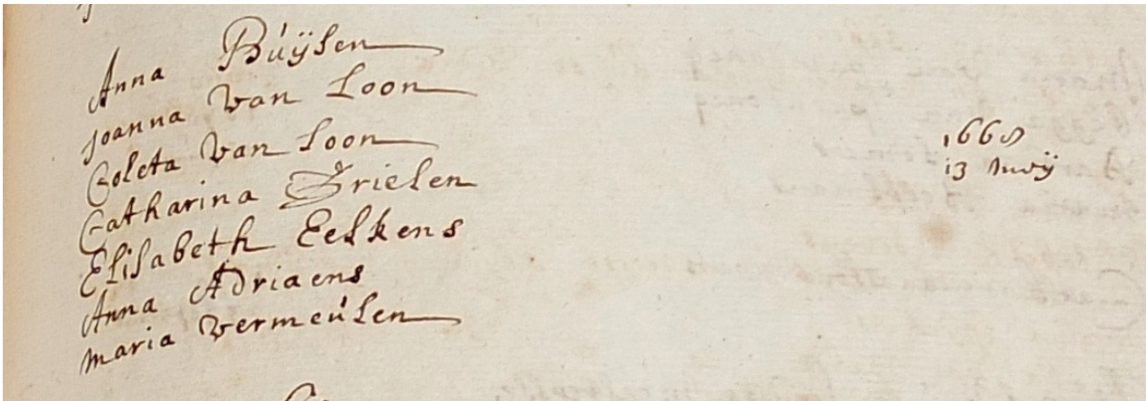 Anna Búÿsen
Joanna van Loon
Coleta van Loon
Catharina Grielen
Elisabeth Eelkens
Anna Adriaens
maria vermeúlen
1668
13 meÿ